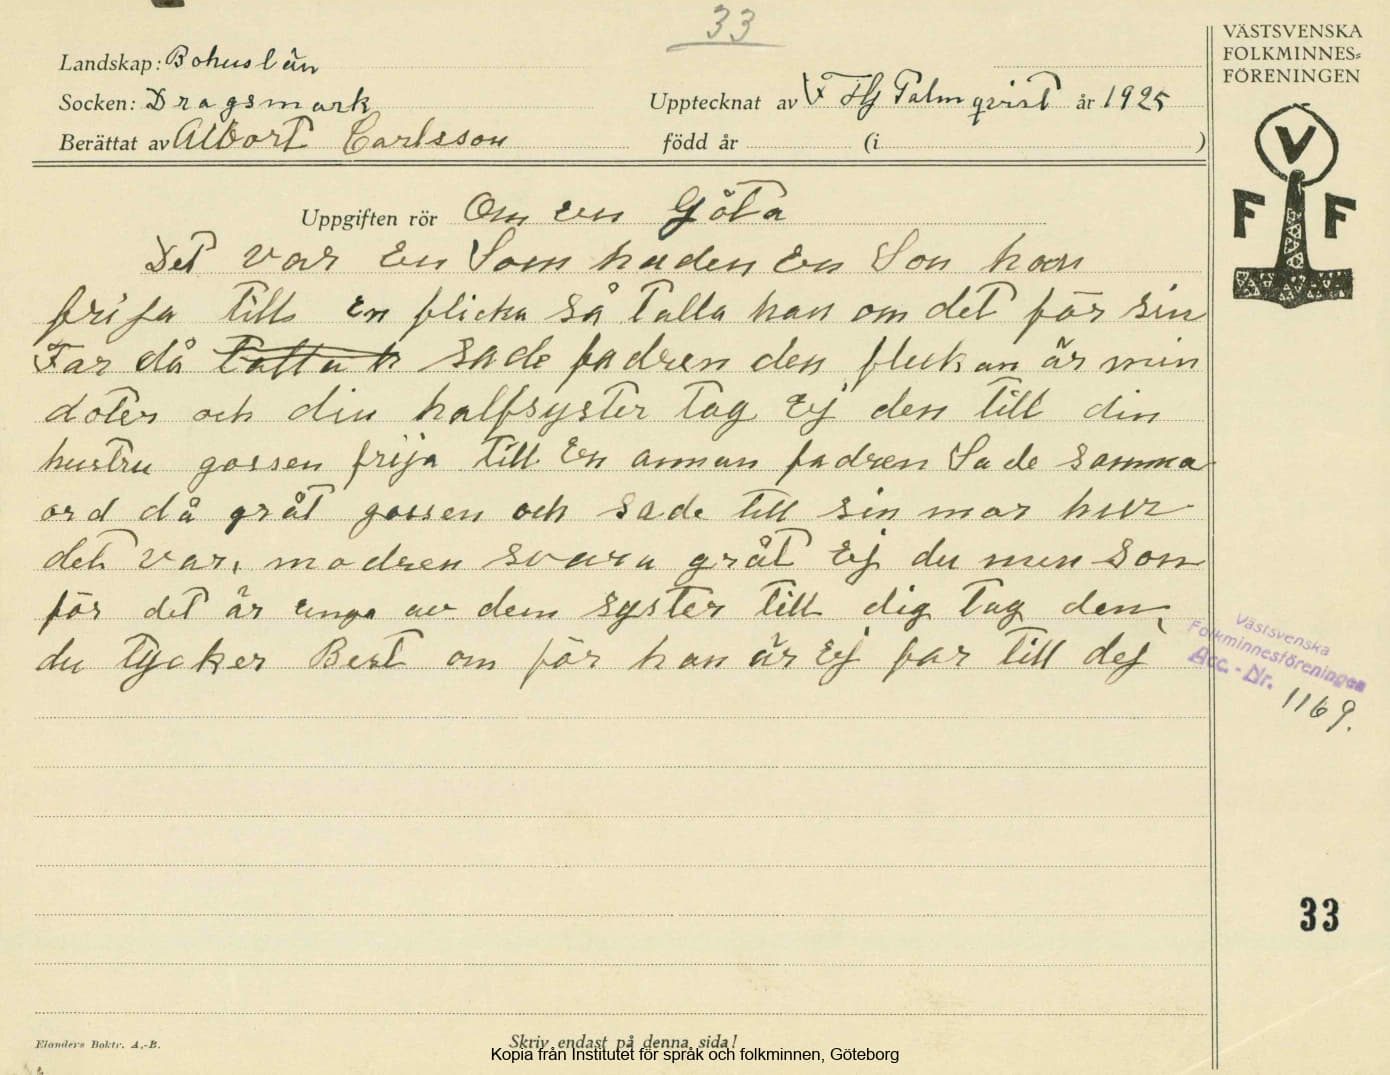 33
VÄSTSVENSKA
FOLKMINNES=
FÖRENINGEN
Landskap: Bohuslän
Socken: Dragsmark
Upptecknat av F Hj Palmqvist år 1925
Berättat av Albort Carlsson
född år (i )
V
F F
Uppgiften rör Om en Göta
Det var en Som haden En Son han
frija till En flicka så talla han om det för sin
Far då talla h sade fadren den flickan är min
doter och din halfsyster tag Ej den till din
hustru gossen frija till En annan fadren Sade samma
ord då gråt gossen och sade till sin mor hur
det var, modren svara gråt Ej du min son
för det är inga av dem syster till dig tag den,
du tycker Best om för han är Ej far till dej
Västsvenska
Folkminnesföreningen
Acc. - Nr. 1169.
33
Elanders Boktr. A.-B.
Skriv endast på denna sida!
Kopia från Institutet för språk och folkminnen, Göteborg